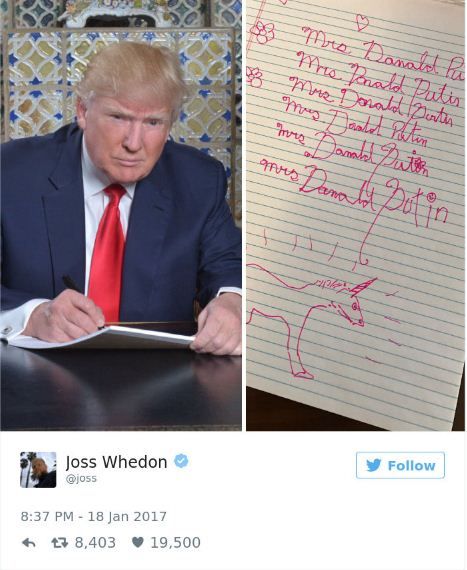 Mrs Donald Pu
Mrs Donald Putin
Mrs Donald Putin
Mrs Donald Putin
Mrs Donald Putin
Mrs Donald Putin
Joss Whedon
Follow
@joss
8:37 PM - 18 Jan 2017
8,403 19,500